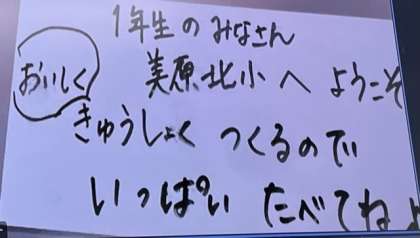 1年生のみなさん
美原北小へ ようこそ
おいしく
きゅうしょく つくるので
いっぱい たべてねよ